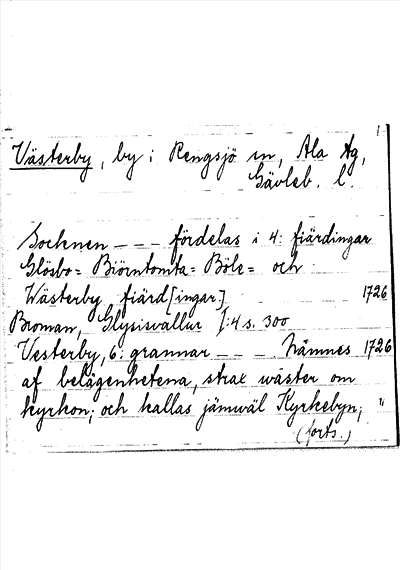 Västerby, by i Rengsjö sn, Ala tg,
Gävleb. l.
Socknen - - - fördelas i 4: fiärdingar
Glösbo= Biörntomta= Böle= och
Wästerby fiärd[ingar] 1726
Broman, Glysisvallur f:4 s. 300
Vesterby, 6: grannar - - - Nämnes 1726
af belägenhetena, strax wäster om
kyrkon; och kallas jämwäl Kyrkebyn; "
(forts.)